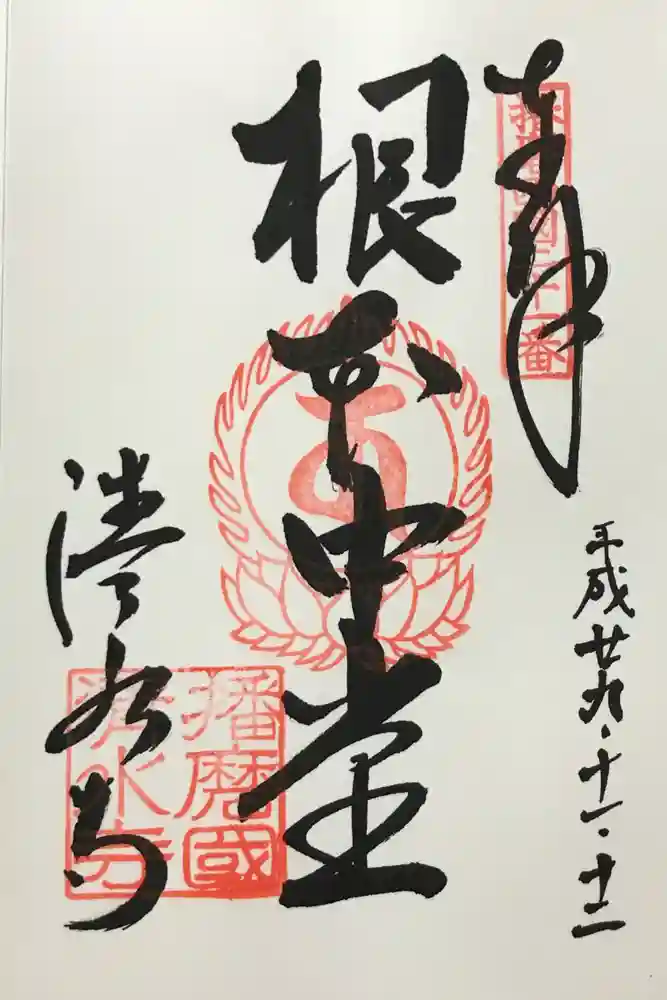 奉拝
播磨国三十一番
平成廿九・十一・十二
根本中堂
清水寺
播磨國
清水寺